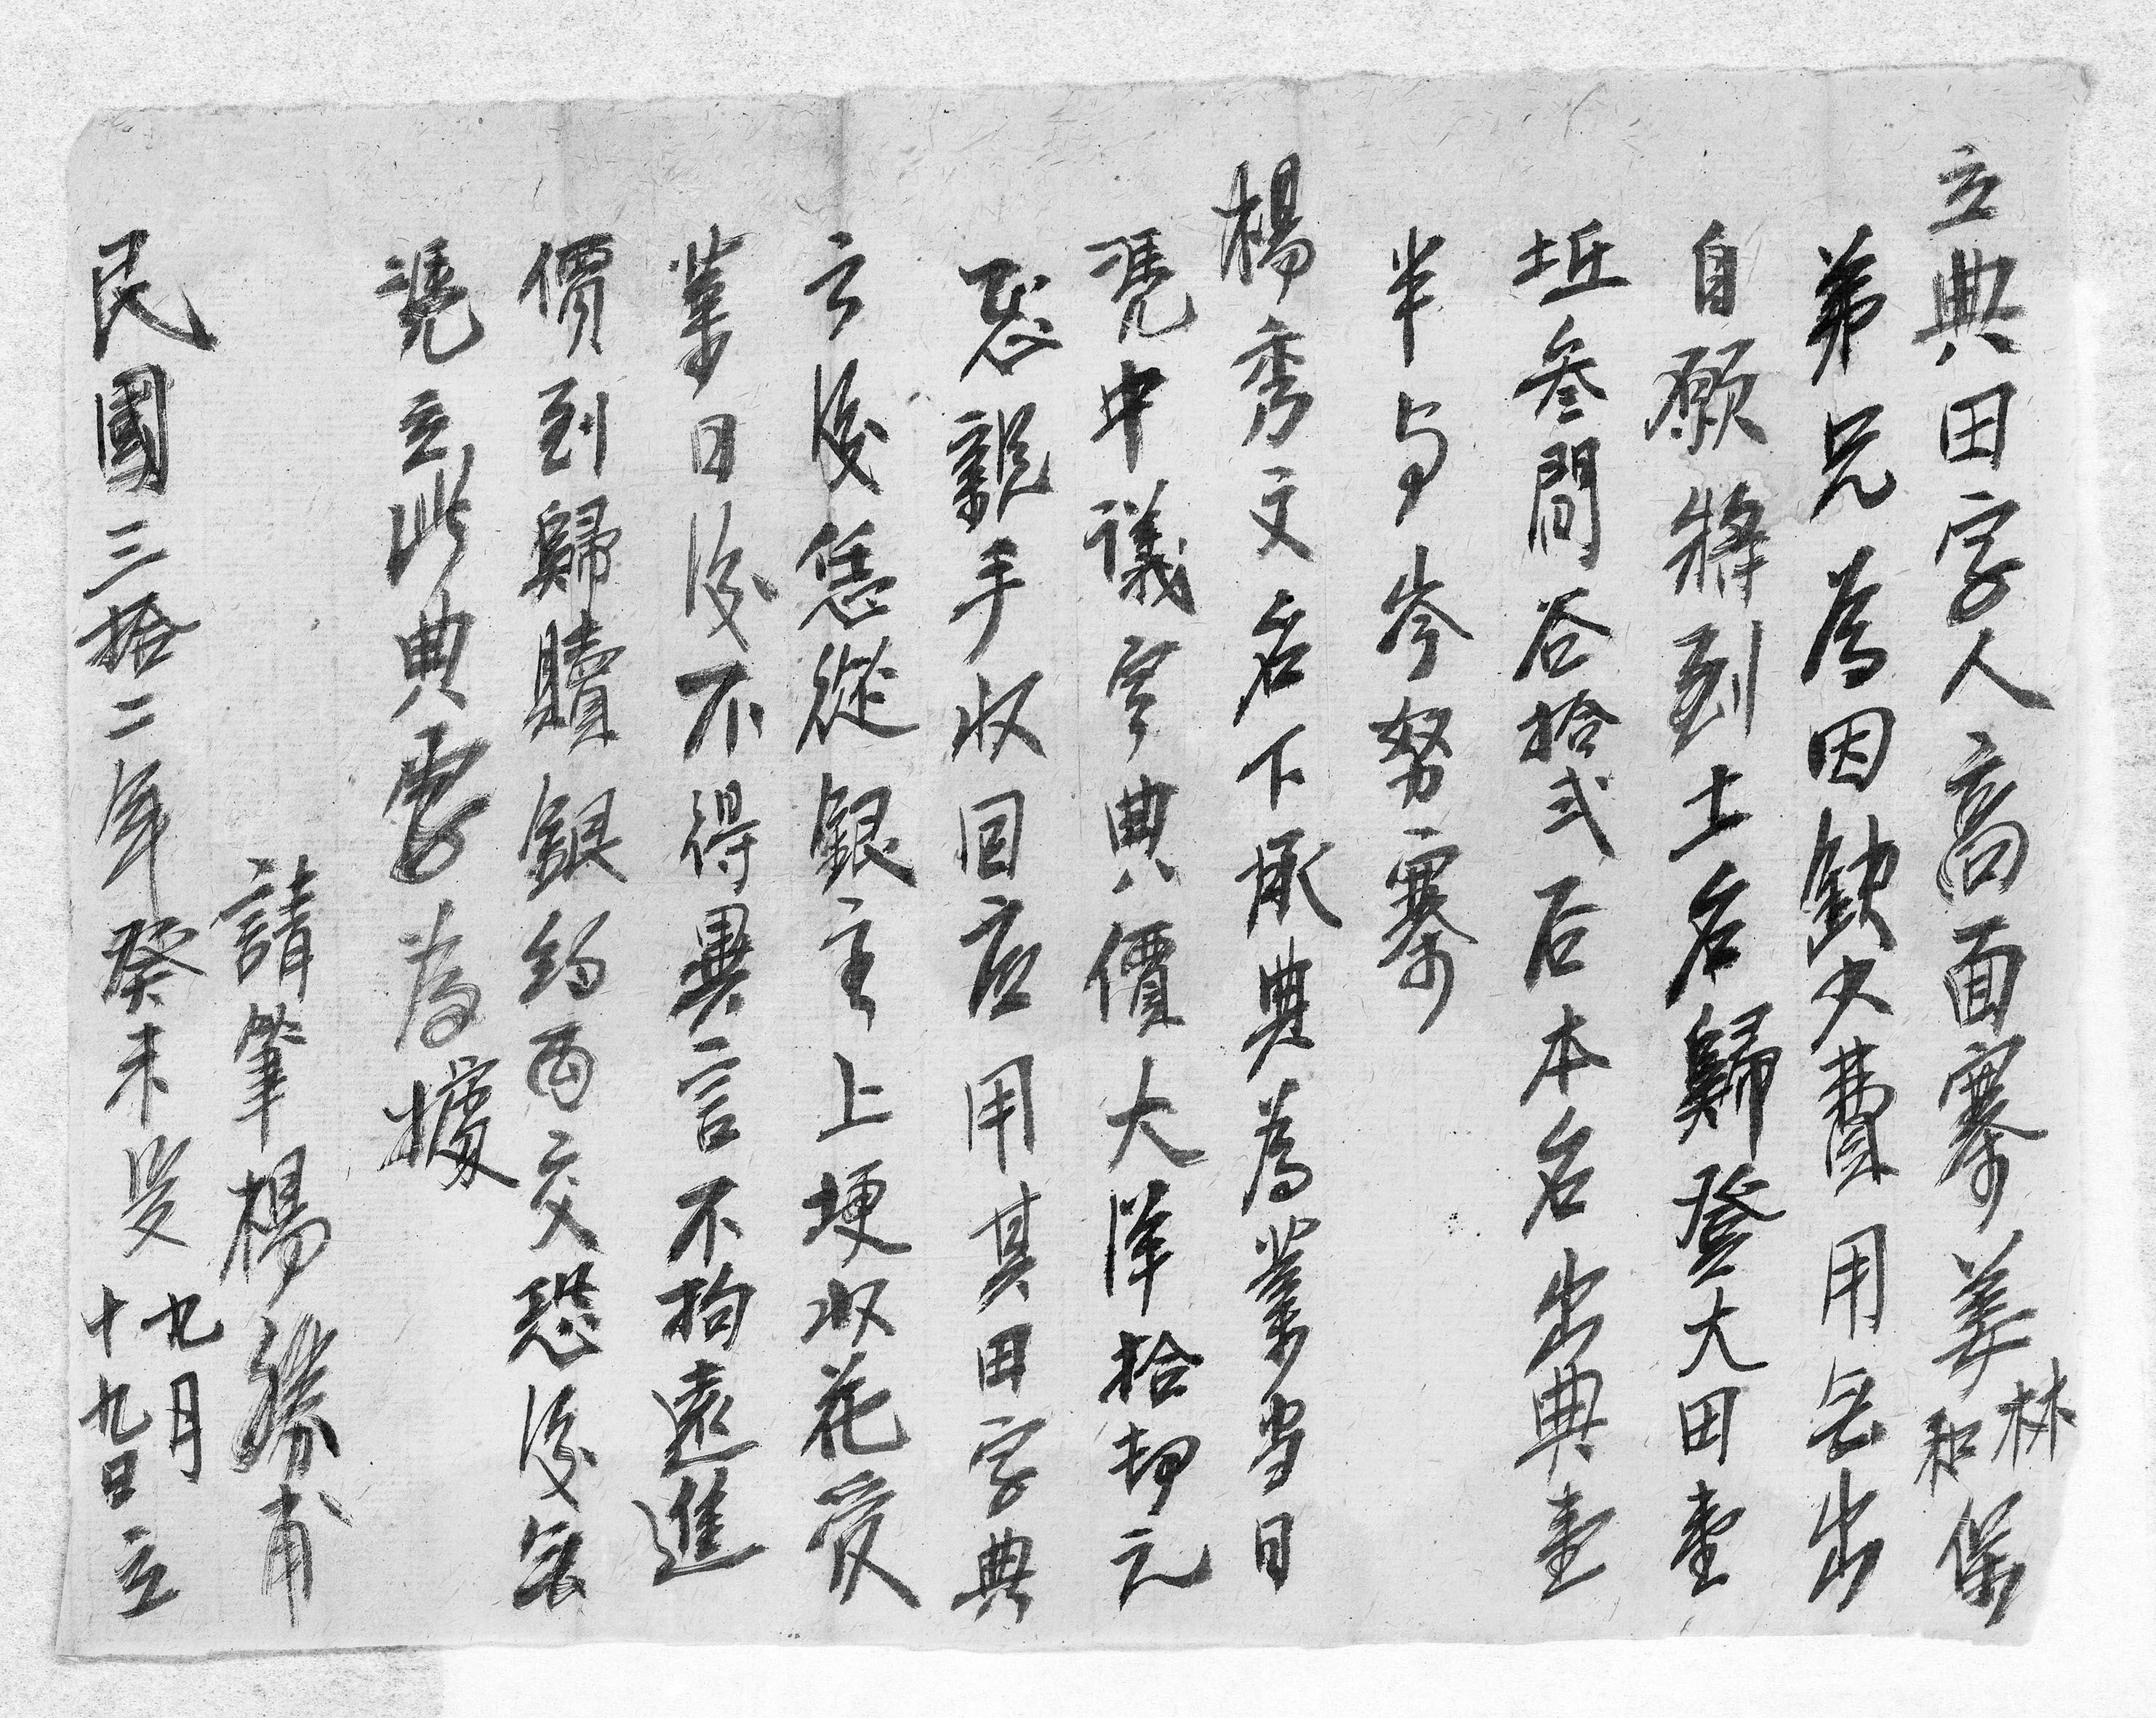 立典田字人高面寨姜林和保
弟兄為因缺少費用無出
自願將到土名歸登大田壹
坵叁間谷拾弍后本名出典壹
半与岑努寨
楊秀文名下承典為業当日
凭中議定典價大洋拾捌元
親手收回应用其田字典
之後恁從銀主上埂收花受
業日後不得異言不拘遠進
價到歸贖銀約両交恐後無
凴立此典字為據
請筆楊勝甫
民國三拾二年癸未歲九月十九日立